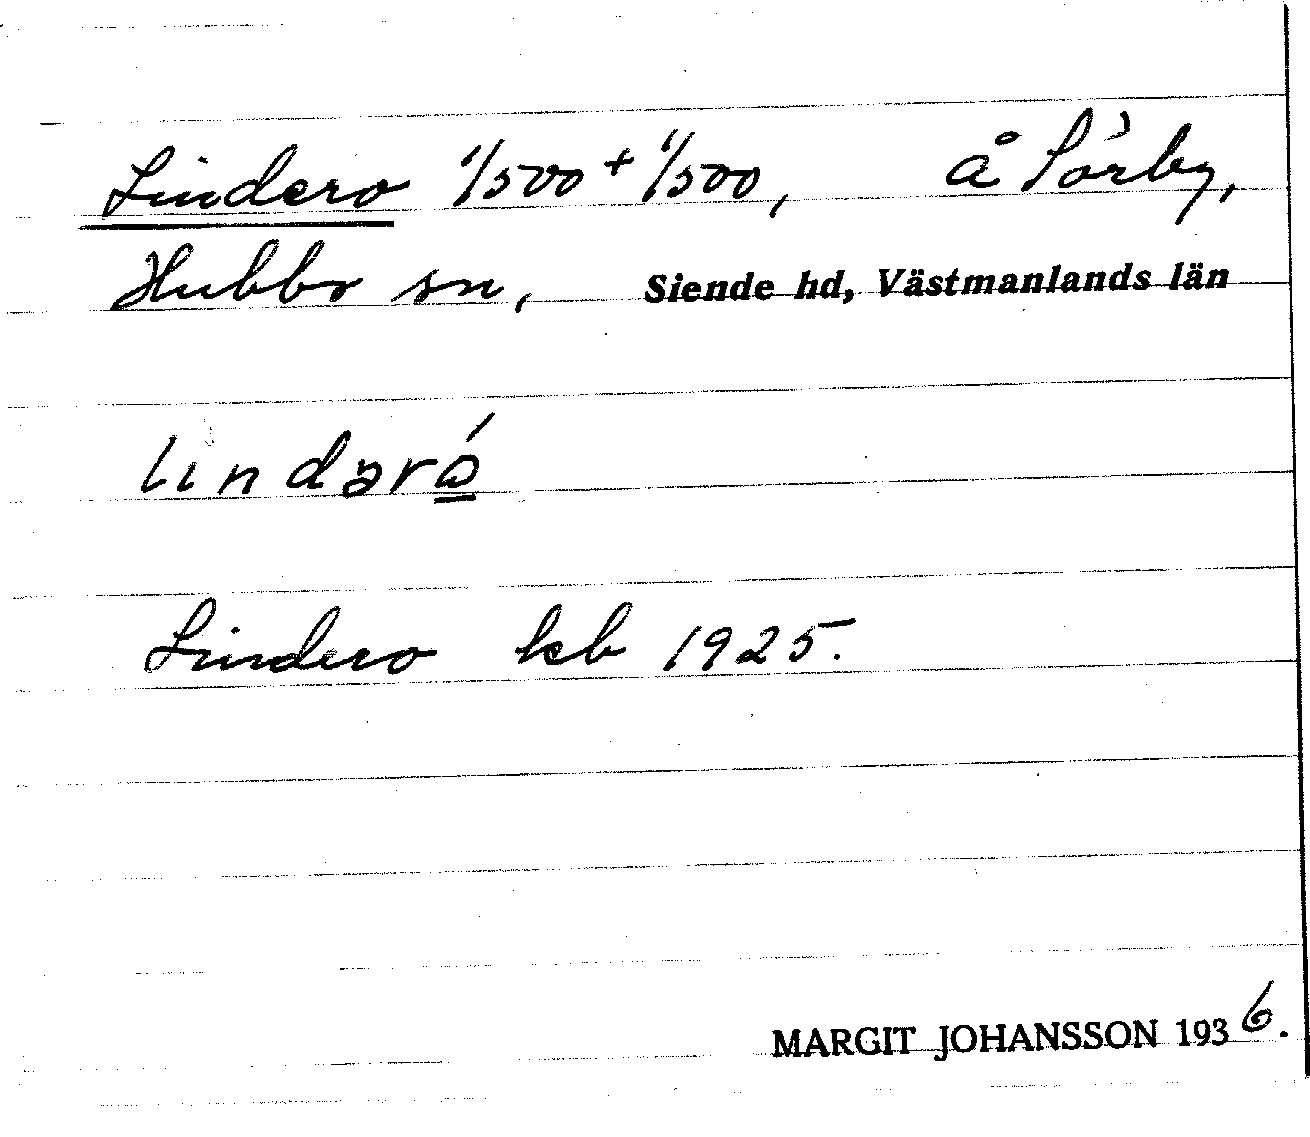 Lindero 1/500 + 1/500, å Sörby,
Hubbo sn, Siende hd, Västmanlands län
lindəró
Lindero kb 1925.
MARGIT JOHANSSON 1936.